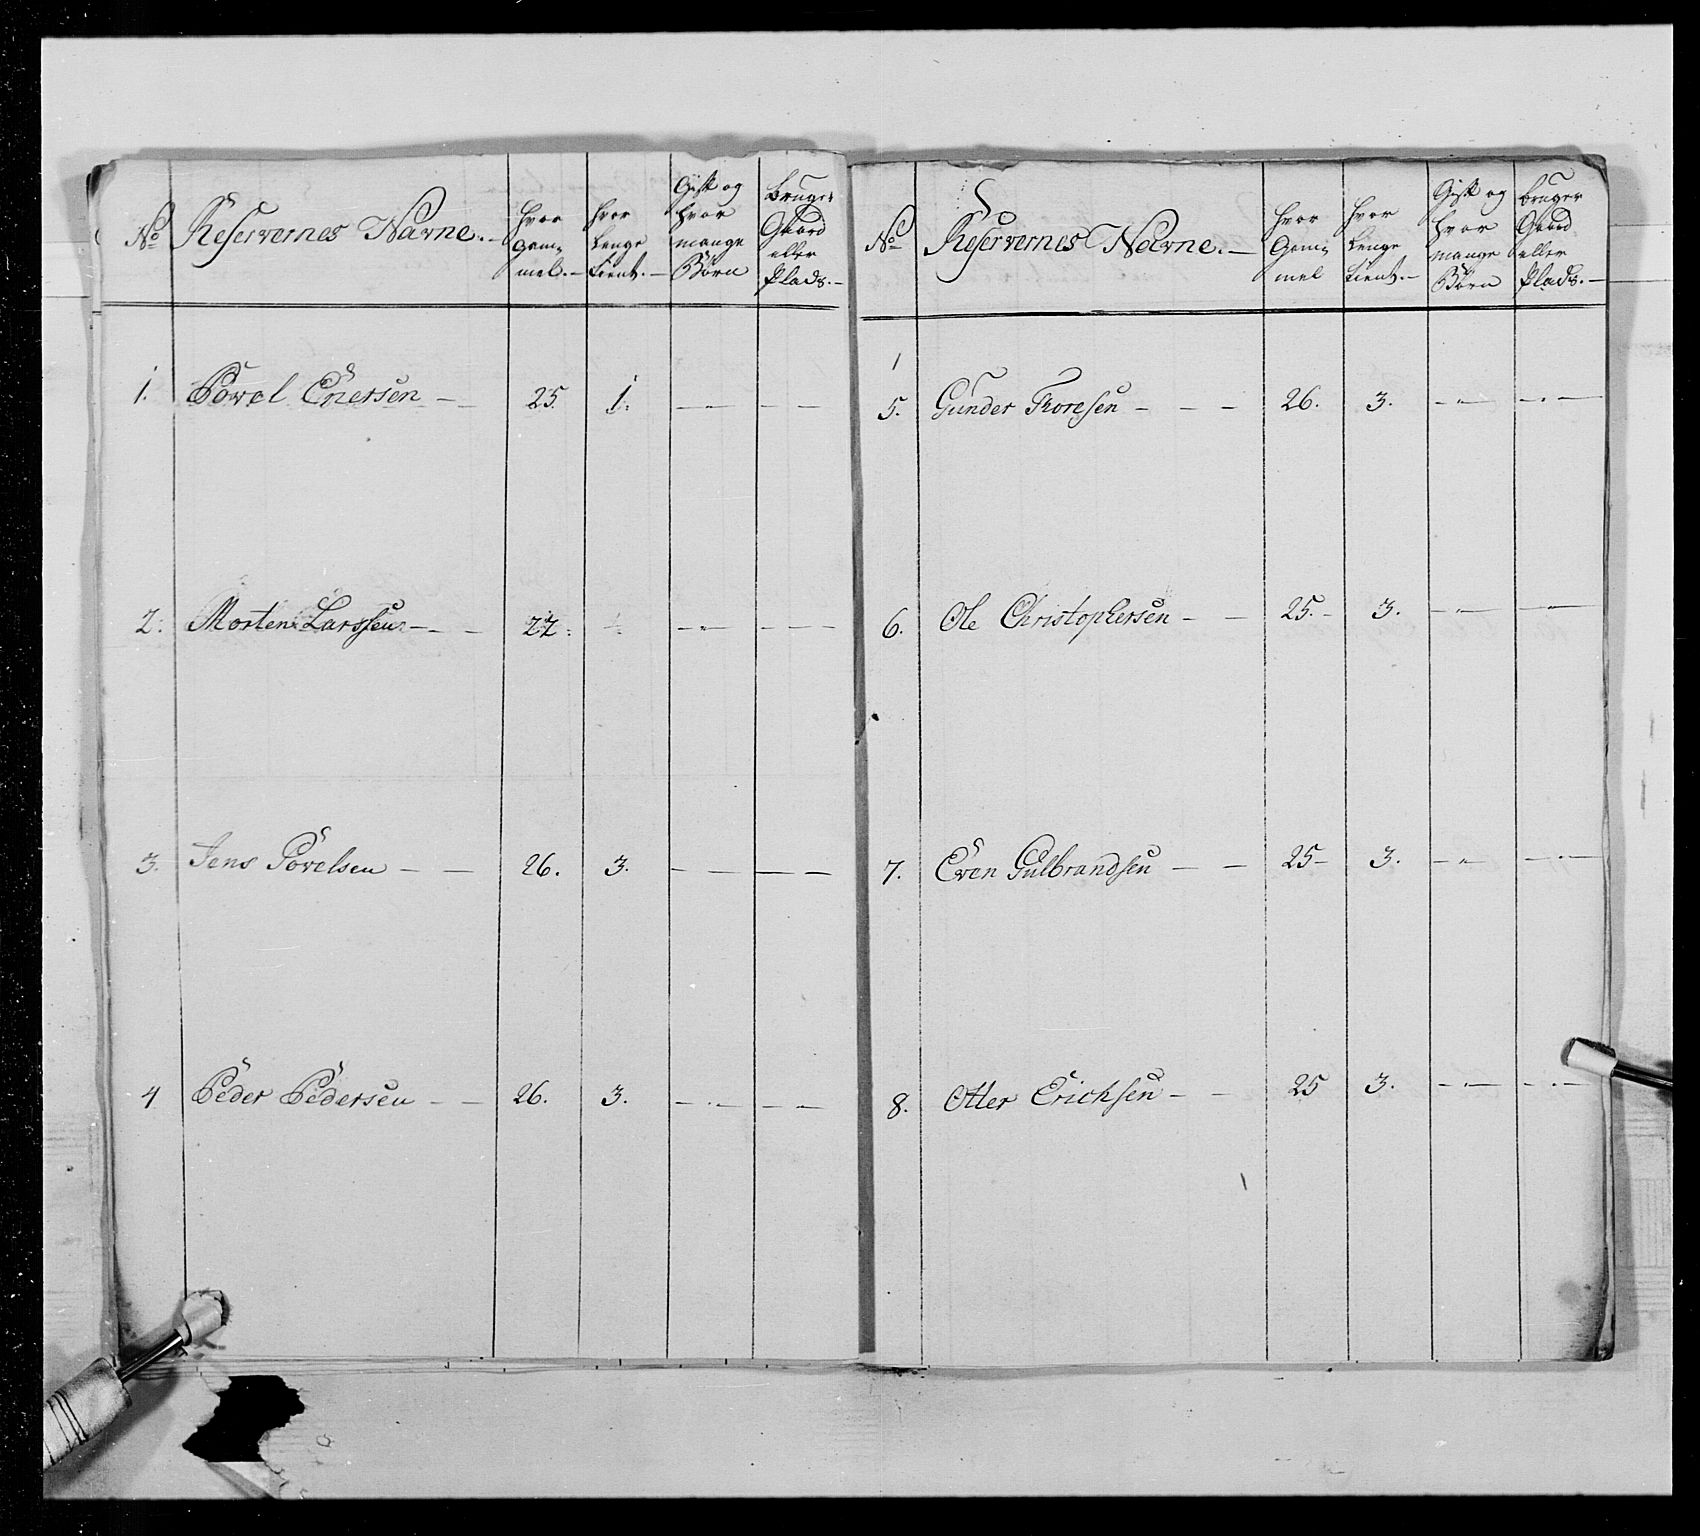 No Reservernes Navne.- hvor Gam= mel.- hvor Lenge tient.- Gift og hvor mange Börn Bruger Gaard eller Plads.-
1. Povel Enersen - - 25. 1. - " - - -
2. Morten Larssen - - - 27. - " - - - -
3. Jens Povelsen - - 26. 3. - - - - -
4 Peder Pedersen - - 26. 3. - " - - -
No Reservernes Navne.- hvor Gam= mel hvor Lenge tient.- Gift og hvor mange Börn Bruger Gaard eller Plads.-
5. Gunder Thoresen - - - 26. 3. - " - - " -
6. Ole Christophersen - - 25.- 3. - " - - " -
7. Even Gulbrandsen - - 25- 3. - " - - " -
8. Otter Erichsen - - 25 3. - " - - " -